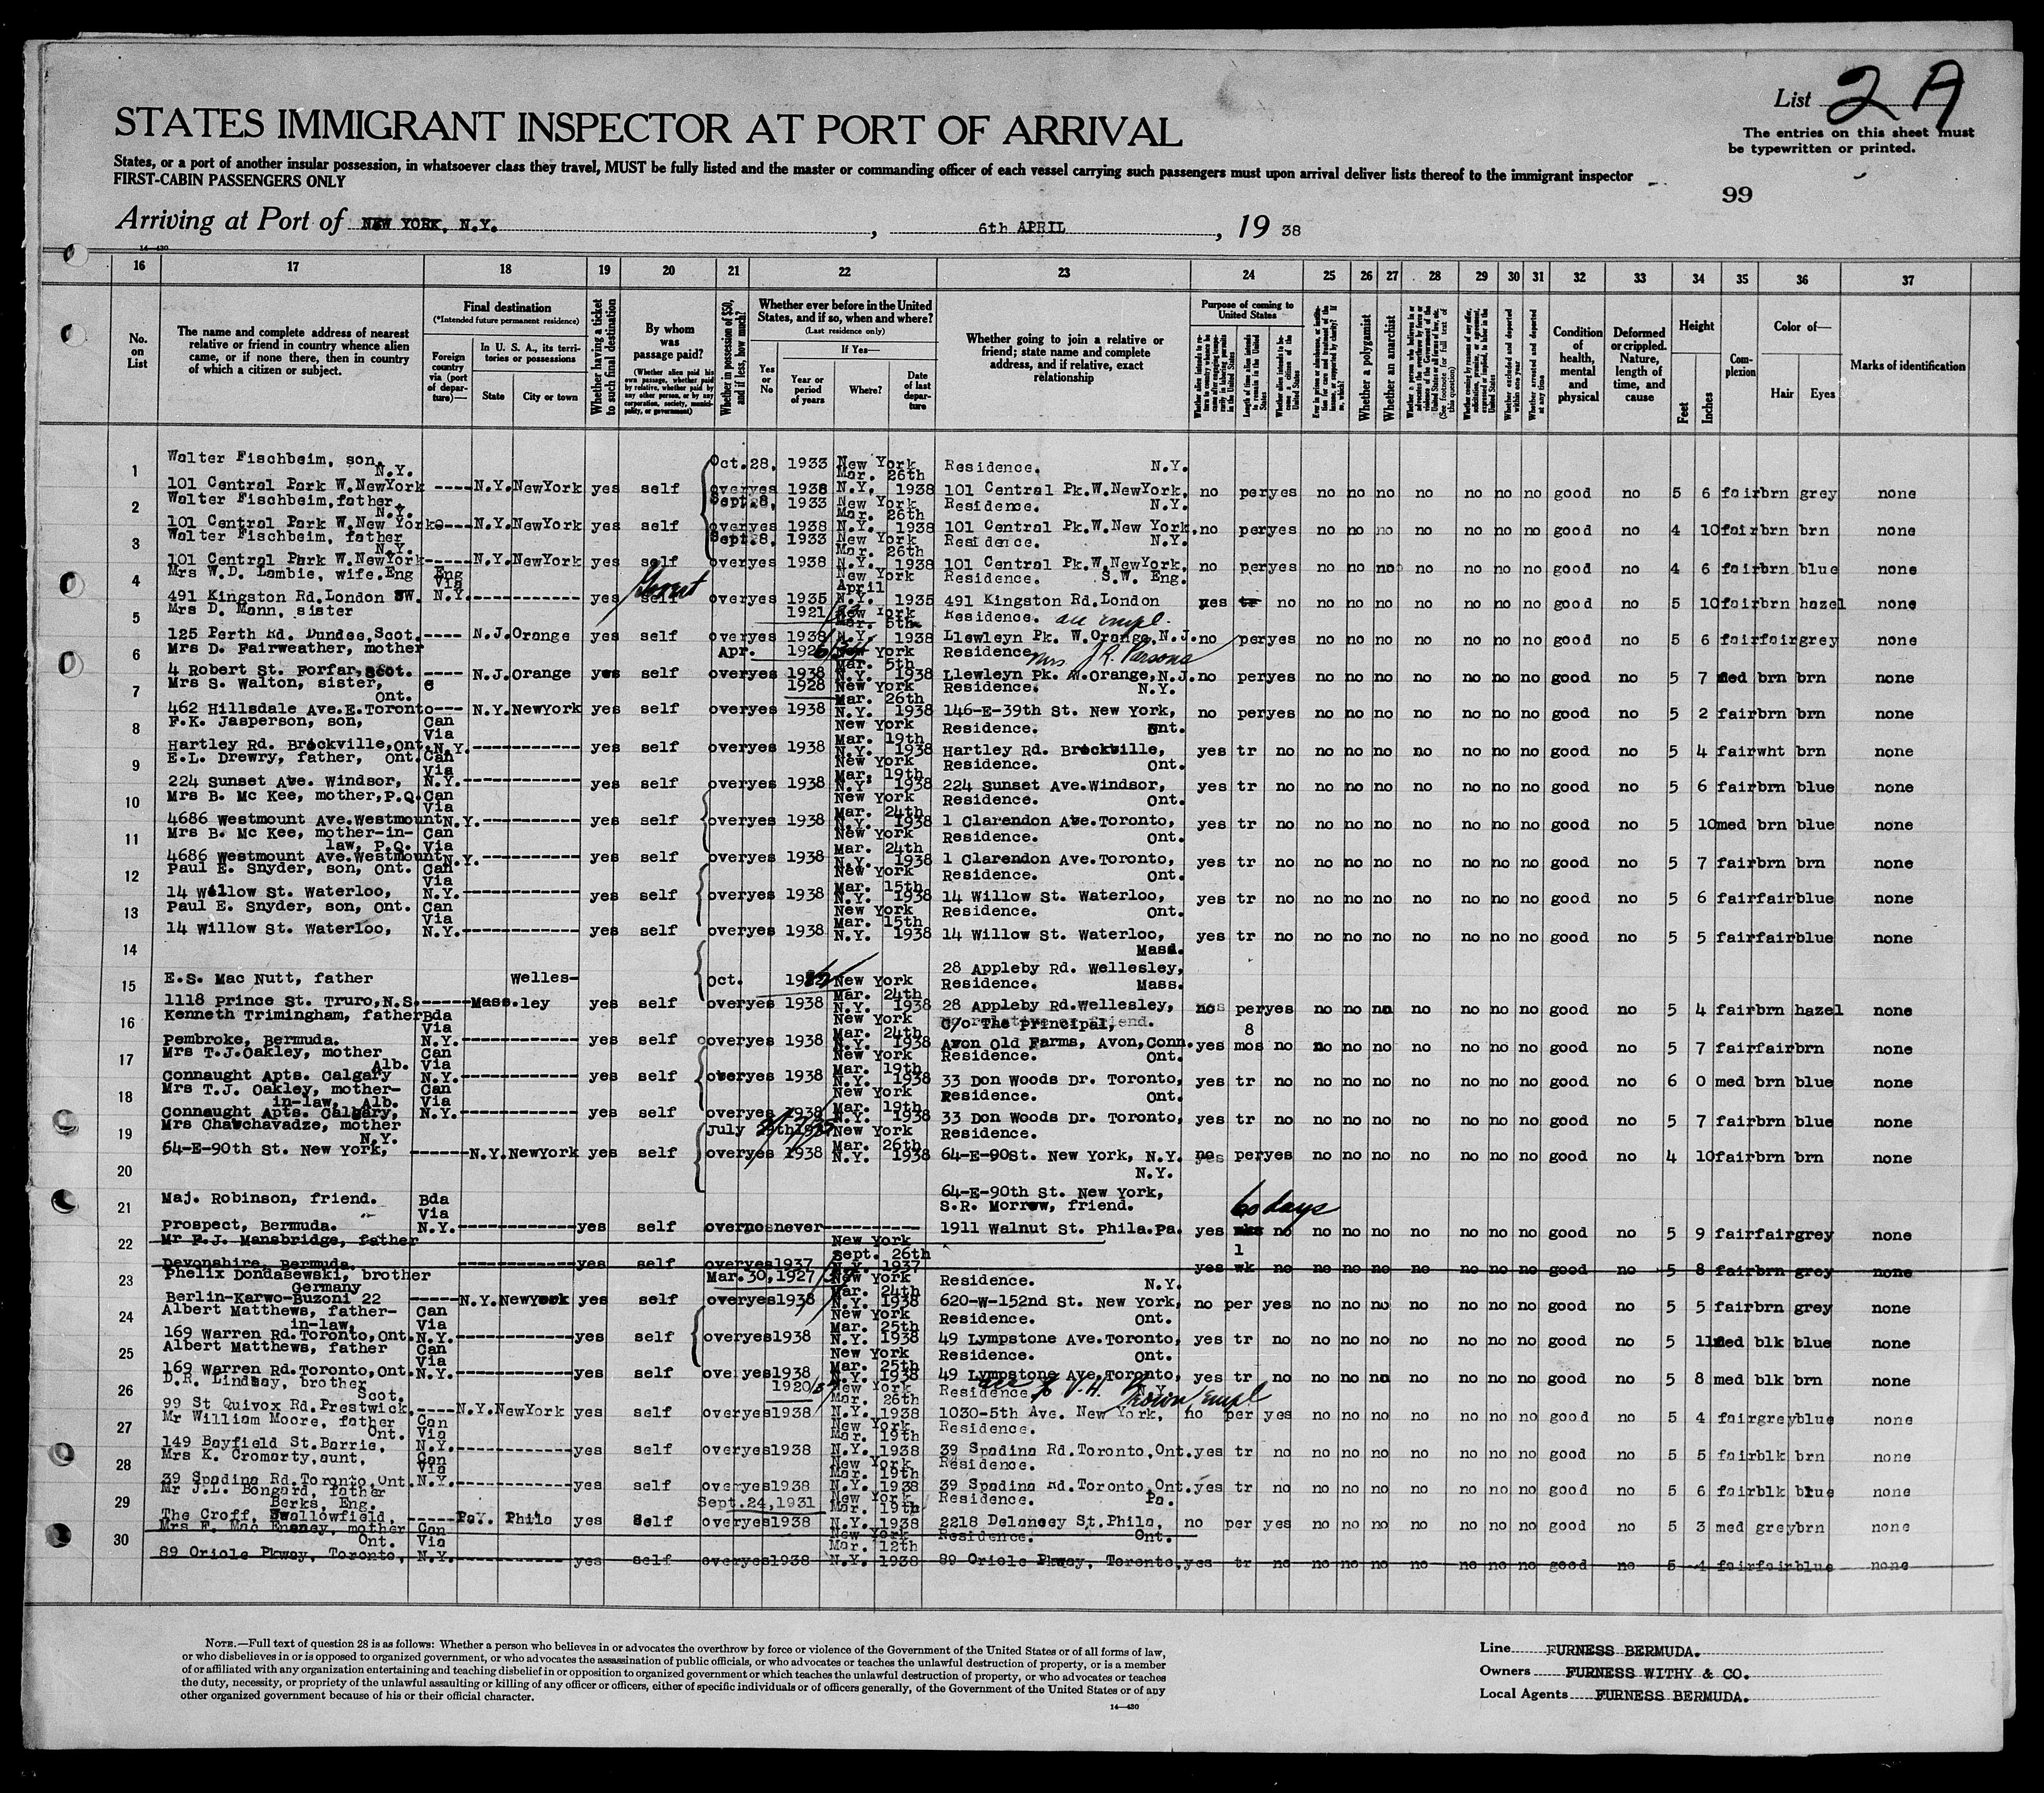 List 2 A
STATES IMMIGRANT INSPECTOR AT PORT OF ARRIVAL
The entries on this sheet must
be typewritten or printed.
States, or a port of another insular possession, in whatsoever class they travel, MUST be fully listed and the master or commanding officer of each vessel carrying such passengers must upon arrival deliver lists thereof to the immigrant inspector
FIRST-CABIN PASSENGERS ONLY
99
Arriving at Port of NEW YORK, N.Y. , 6th APRIL , 19 38
14—430
16 17 18 19 20 21 22 23 24 25 26 27 28 29 30 31 32 33 34 35 36 37
No. on List
The name and complete address of nearest relative or friend in country whence alien came, or if none there, then in country of which a citizen or subject.
Final destination
(*Intended future permanent residence)
Foreign country via (port of departure)—
In U. S. A., its territories or possessions
State City or town
Whether having a ticket to such final destination
By whom was passage paid?
(Whether alien paid his own passage, whether paid by relative, whether paid by any other person, or by any corporation, society, municipality, or government)
Whether in possession of $50, and if less, how much?
Whether ever before in the United States, and if so, when and where?
(Last residence only)
Yes or No
If Yes—
Year or period of years
Where?
Date of last departure
Whether going to join a relative or friend; state name and complete address, and if relative, exact relationship
Purpose of coming to United States
Length of time alien intends to remain in the United States
Whether alien intends to become a citizen of the United States
Whether a polygamist
Whether an anarchist
Whether excluded and deported within one year
Whether arrested and deported at any time
Condition of health, mental and physical
Deformed or crippled. Nature, length of time, and cause
Height
Feet Inches
Complexion
Color of—
Hair Eyes
Marks of identification
1 Walter Fischbeim, son, N.Y. Oct. 28, 1933 New York Mar. 26th Residence. N.Y.
101 Central Park W. NewYork ---- N.Y. NewYork yes self over yes 1938 N.Y. 1938 101 Central Pk.W.NewYork, no per yes no no no no no no no good no 5 6 fair brn grey none
2 Walter Fischbeim, father N.Y. Sept. 8, 1933 New York Mar. 26th Residence. N.Y.
101 Central Park W. New York ---- N.Y. NewYork yes self over yes 1938 N.Y. 1938 101 Central Pk.W.New York, no per yes no no no no no no no good no 4 10 fair brn brn none
3 Walter Fischbeim, father N.Y. Sept. 8, 1933 New York Mar. 26th Residence. N.Y.
101 Central Park W. NewYork ----- N.Y. NewYork yes self over yes 1938 N.Y. 1938 101 Central Pk.W.NewYork, no per yes no no no no no no no good no 4 6 fair brn blue none
4 Mrs W.D. Lambie, wife. Eng Eng Via New York April Residence. S.W. Eng.
491 Kingston Rd. London SW. N.Y. ------------ yes self over yes 1935 N.Y. 1935 491 Kingston Rd. London yes tr no no no no no no no no good no 5 10 fair brn hazel none
5 Mrs D. Mann, sister 1921 New York Mar. 5th Residence. empl.
125 Perth Rd. Dundee, Scot. ---- N.J. Orange yes self over yes 1938 N.Y. 1938 Llewleyn Pk. W.Orange, N.J. no per yes no no no no no no no good no 5 6 fair fair grey none
6 Mrs D. Fairweather, mother Apr. New York Mar. 5th Residence Mrs J.R. Parsons
4 Robert St. Forfar, Scot. ---- N.J. Orange yes self over yes 1938 N.Y. 1938 Llewleyn Pk. W.Orange, N.J. no per yes no no no no no no no good no 5 7 med brn brn none
7 Mrs S. Walton, sister, Ont. 1928 New York Mar. 26th Residence. N.Y.
462 Hillsdale Ave. E. Toronto --- N.Y. NewYork yes self over yes 1938 N.Y. 1938 146-E-39th St. New York, no per yes no no no no no no no good no 5 2 fair brn brn none
8 F.K. Jasperson, son, Can Via New York Mar. 19th Residence. Ont.
Hartley Rd. Brockville, Ont. N.Y. ------------ yes self over yes 1938 N.Y. 1938 Hartley Rd. Brockville, yes tr no no no no no no no no good no 5 4 fair wht brn none
9 E.L. Drewry, father, Ont. Can Via New York Mar. 19th Residence. Ont.
224 Sunset Ave. Windsor, N.Y. ------------ yes self over yes 1938 N.Y. 1938 224 Sunset Ave. Windsor, yes tr no no no no no no no no good no 5 6 fair brn blue none
10 Mrs B. Mc Kee, mother, P.Q. Can Via New York Mar. 24th Residence. Ont.
4686 Westmount Ave. Westmount N.Y. ----------- yes self over yes 1938 N.Y. 1938 1 Clarendon Ave. Toronto, yes tr no no no no no no no no good no 5 10 med brn blue none
11 Mrs B. Mc Kee, mother-in-law, P.Q. Can Via New York Mar. 24th Residence. Ont.
4686 Westmount Ave. Westmount N.Y. ----------- yes self over yes 1938 N.Y. 1938 1 Clarendon Ave. Toronto, yes tr no no no no no no no no good no 5 7 fair brn brn none
12 Paul E. Snyder, son, Ont. Can Via New York Mar. 15th Residence. Ont.
14 Willow St. Waterloo, N.Y. ------------ yes self over yes 1938 N.Y. 1938 14 Willow St. Waterloo, yes tr no no no no no no no no good no 5 6 fair fair blue none
13 Paul E. Snyder, son, Ont. Can Via New York Mar. 15th Residence. Ont.
14 Willow St. Waterloo, N.Y. ------------ yes self over yes 1938 N.Y. 1938 14 Willow St. Waterloo, yes tr no no no no no no no no good no 5 5 fair fair blue none
14 Mass.
28 Appleby Rd. Wellesley,
15 E.S. Mac Nutt, father Welles- Oct. New York Mar. 24th Residence. Mass.
1118 Prince St. Truro, N.S. ------ Mass. ley yes self over yes 1938 N.Y. 1938 28 Appleby Rd. Wellesley, no per yes no no no no no no no good no 5 4 fair brn hazel none
16 Kenneth Trimingham, father Bda Via New York Mar. 24th C/o The Principal, 8
Pembroke, Bermuda. N.Y. ------------ yes self over yes 1938 N.Y. 1938 Avon Old Farms, Avon, Conn. yes mos no no no no no no no no good no 5 7 fair fair brn none
17 Mrs T.J. Oakley, mother Alb. Can Via New York Mar. 19th Residence. Ont.
Connaught Apts. Calgary N.Y. ------------ yes self over yes 1938 N.Y. 1938 33 Don Woods Dr. Toronto, yes tr no no no no no no no no good no 6 0 med brn blue none
18 Mrs T.J. Oakley, mother-in-law, Alb. Can Via New York Mar. 19th Residence. Ont.
Connaught Apts. Calgary, N.Y. ------------ yes self over yes 1938 N.Y. 1938 33 Don Woods Dr. Toronto, yes tr no no no no no no no no good no 5 7 fair brn blue none
19 Mrs Chavchavadze, mother N.Y. July New York Mar. 26th Residence.
64-E-90th St. New York, ------ N.Y. NewYork yes self over yes 1938 N.Y. 1938 64-E-90St. New York, N.Y. no per yes no no no no no no no good no 4 10 fair brn brn none
20 N.Y.
64-E-90th St. New York,
21 Maj. Robinson, friend. Bda Via S.R. Morrow, friend. 60 days
Prospect, Bermuda. N.Y. ------------ yes self over no never ---------- 1911 Walnut St. Phila. Pa. yes no no no no no no no no good no 5 9 fair fair grey none
22 Mr P.J. Mansbridge, father New York Sept. 26th 1
Devonshire, Bermuda. ------------ yes self over yes 1937 N.Y. 1937 yes wk no no no no no no no no good no 5 8 fair brn grey none
23 Phelix Dondasewski, brother Germany Mar. 30, 1927 New York Mar. 24th Residence. N.Y.
Berlin-Karwo-Buzoni 22 ----- N.Y. NewYork yes self over yes 1938 N.Y. 1938 620-W-152nd St. New York, no per yes no no no no no no no good no 5 5 fair brn grey none
24 Albert Matthews, father-in-law, Can Via New York Mar. 25th Residence. Ont.
169 Warren Rd. Toronto, Ont. N.Y. ------------ yes self over yes 1938 N.Y. 1938 49 Lympstone Ave. Toronto, yes tr no no no no no no no no good no 5 11 med blk blue none
25 Albert Matthews, father Can Via New York Mar. 25th Residence. Ont.
169 Warren Rd. Toronto, Ont. N.Y. ------------ yes self over yes 1938 N.Y. 1938 49 Lympstone Ave. Toronto, yes tr no no no no no no no no good no 5 8 med blk brn none
26 D.R. Lindsay, brother Scot. 1920 New York Mar. 26th Residence. N.Y. V.H. Brown, empl
99 St Quivox Rd. Prestwick, ---- N.Y. NewYork yes self over yes 1938 N.Y. 1938 1030-5th Ave. New York, no per yes no no no no no no no good no 5 4 fair grey blue none
27 Mr William Moore, father Ont. Can Via New York Mar. 19th Residence.
149 Bayfield St. Barrie, N.Y. ------------ yes self over yes 1938 N.Y. 1938 39 Spadina Rd. Toronto, Ont. yes tr no no no no no no no no good no 5 5 fair blk brn none
28 Mrs K. Cromarty, aunt, Can Via New York Mar. 19th Residence.
39 Spadina Rd. Toronto, Ont. N.Y. ------------ yes self over yes 1938 N.Y. 1938 39 Spadina Rd. Toronto, Ont. yes tr no no no no no no no no good no 5 6 fair blk blue none
29 Mr J.L. Bongard, father Berks, Eng. Sept. 24, 1931 New York Mar. 19th Residence. Pa.
The Croff, Swallowfield, ----- Phila yes Self over yes 1938 N.Y. 1938 2218 Delancey St. Phila, no per yes no no no no no no no good no 5 3 med grey brn none
30 Mrs F. Mac Eneney, mother Ont. Can Via New York Mar. 12th Residence. Ont.
89 Oriole Pkway, Toronto, N.Y. ------------ yes self over yes 1938 N.Y. 1938 89 Oriole Pkway, Toronto, yes tr no no no no no no no no good no 5 4 fair fair blue none
NOTE.—Full text of question 28 is as follows: Whether a person who believes in or advocates the overthrow by force or violence of the Government of the United States or of all forms of law,
or who disbelieves in or is opposed to organized government, or who advocates the assassination of public officials, or who advocates or teaches the unlawful destruction of property, or is a member
of or affiliated with any organization entertaining and teaching disbelief in or opposition to organized government or which teaches the unlawful destruction of property, or who advocates or teaches
the duty, necessity, or propriety of the unlawful assaulting or killing of any officer or officers, either of specific individuals or of officers generally, of the Government of the United States or of any
other organized government because of his or their official character.
14—430
Line FURNESS BERMUDA.
Owners FURNESS WITHY & CO.
Local Agents FURNESS BERMUDA.